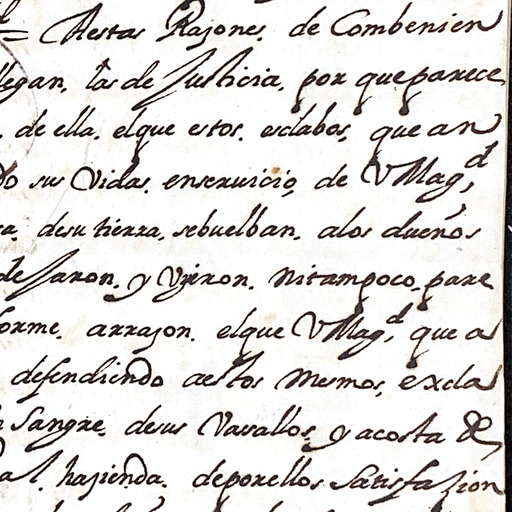 = Aestas Rajones. de Combenien
llegan. las de Justicia. por que parece
de ella. el que estos. esclabos, que an
do sus Vidas. enseruicio, de VMagd,
desu tierra. sebuelban. alos dueños
deJaron. y Vyeron. nitampoco. pare
forme. arrajon. elque VMagd, que a
defendiendo aestos mesmos, excla
Sangre. desus Vasallos, y acosta de
al. hazienda. deporellos Satisfazion